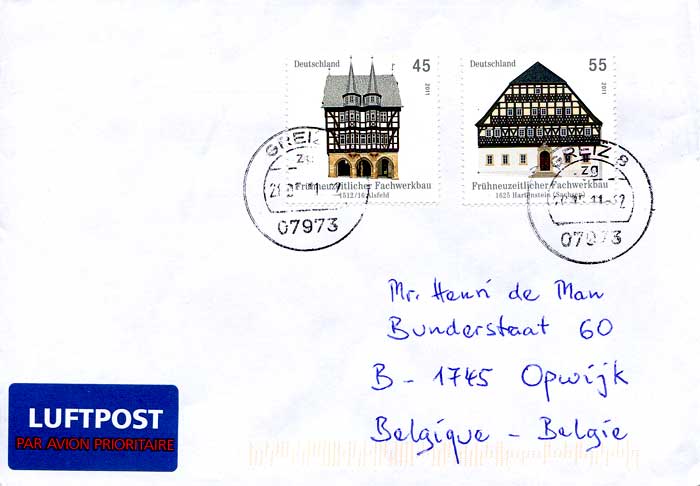 Deutschland 45
2011
Frühneuzeitlicher Fachwerkbau
1512/16 Alsfeld
Deutschland 55
2011
Frühneuzeitlicher Fachwerkbau
1625 Hartenstein (Sachsen)
GREIZ
zg
07973
GREIZ 8
zg
07973
Mr. Henri de Man
Bunderstaat 60
B - 1745 Opwijk
Belgique - Belgie
LUFTPOST
PAR AVION PRIORITAIRE